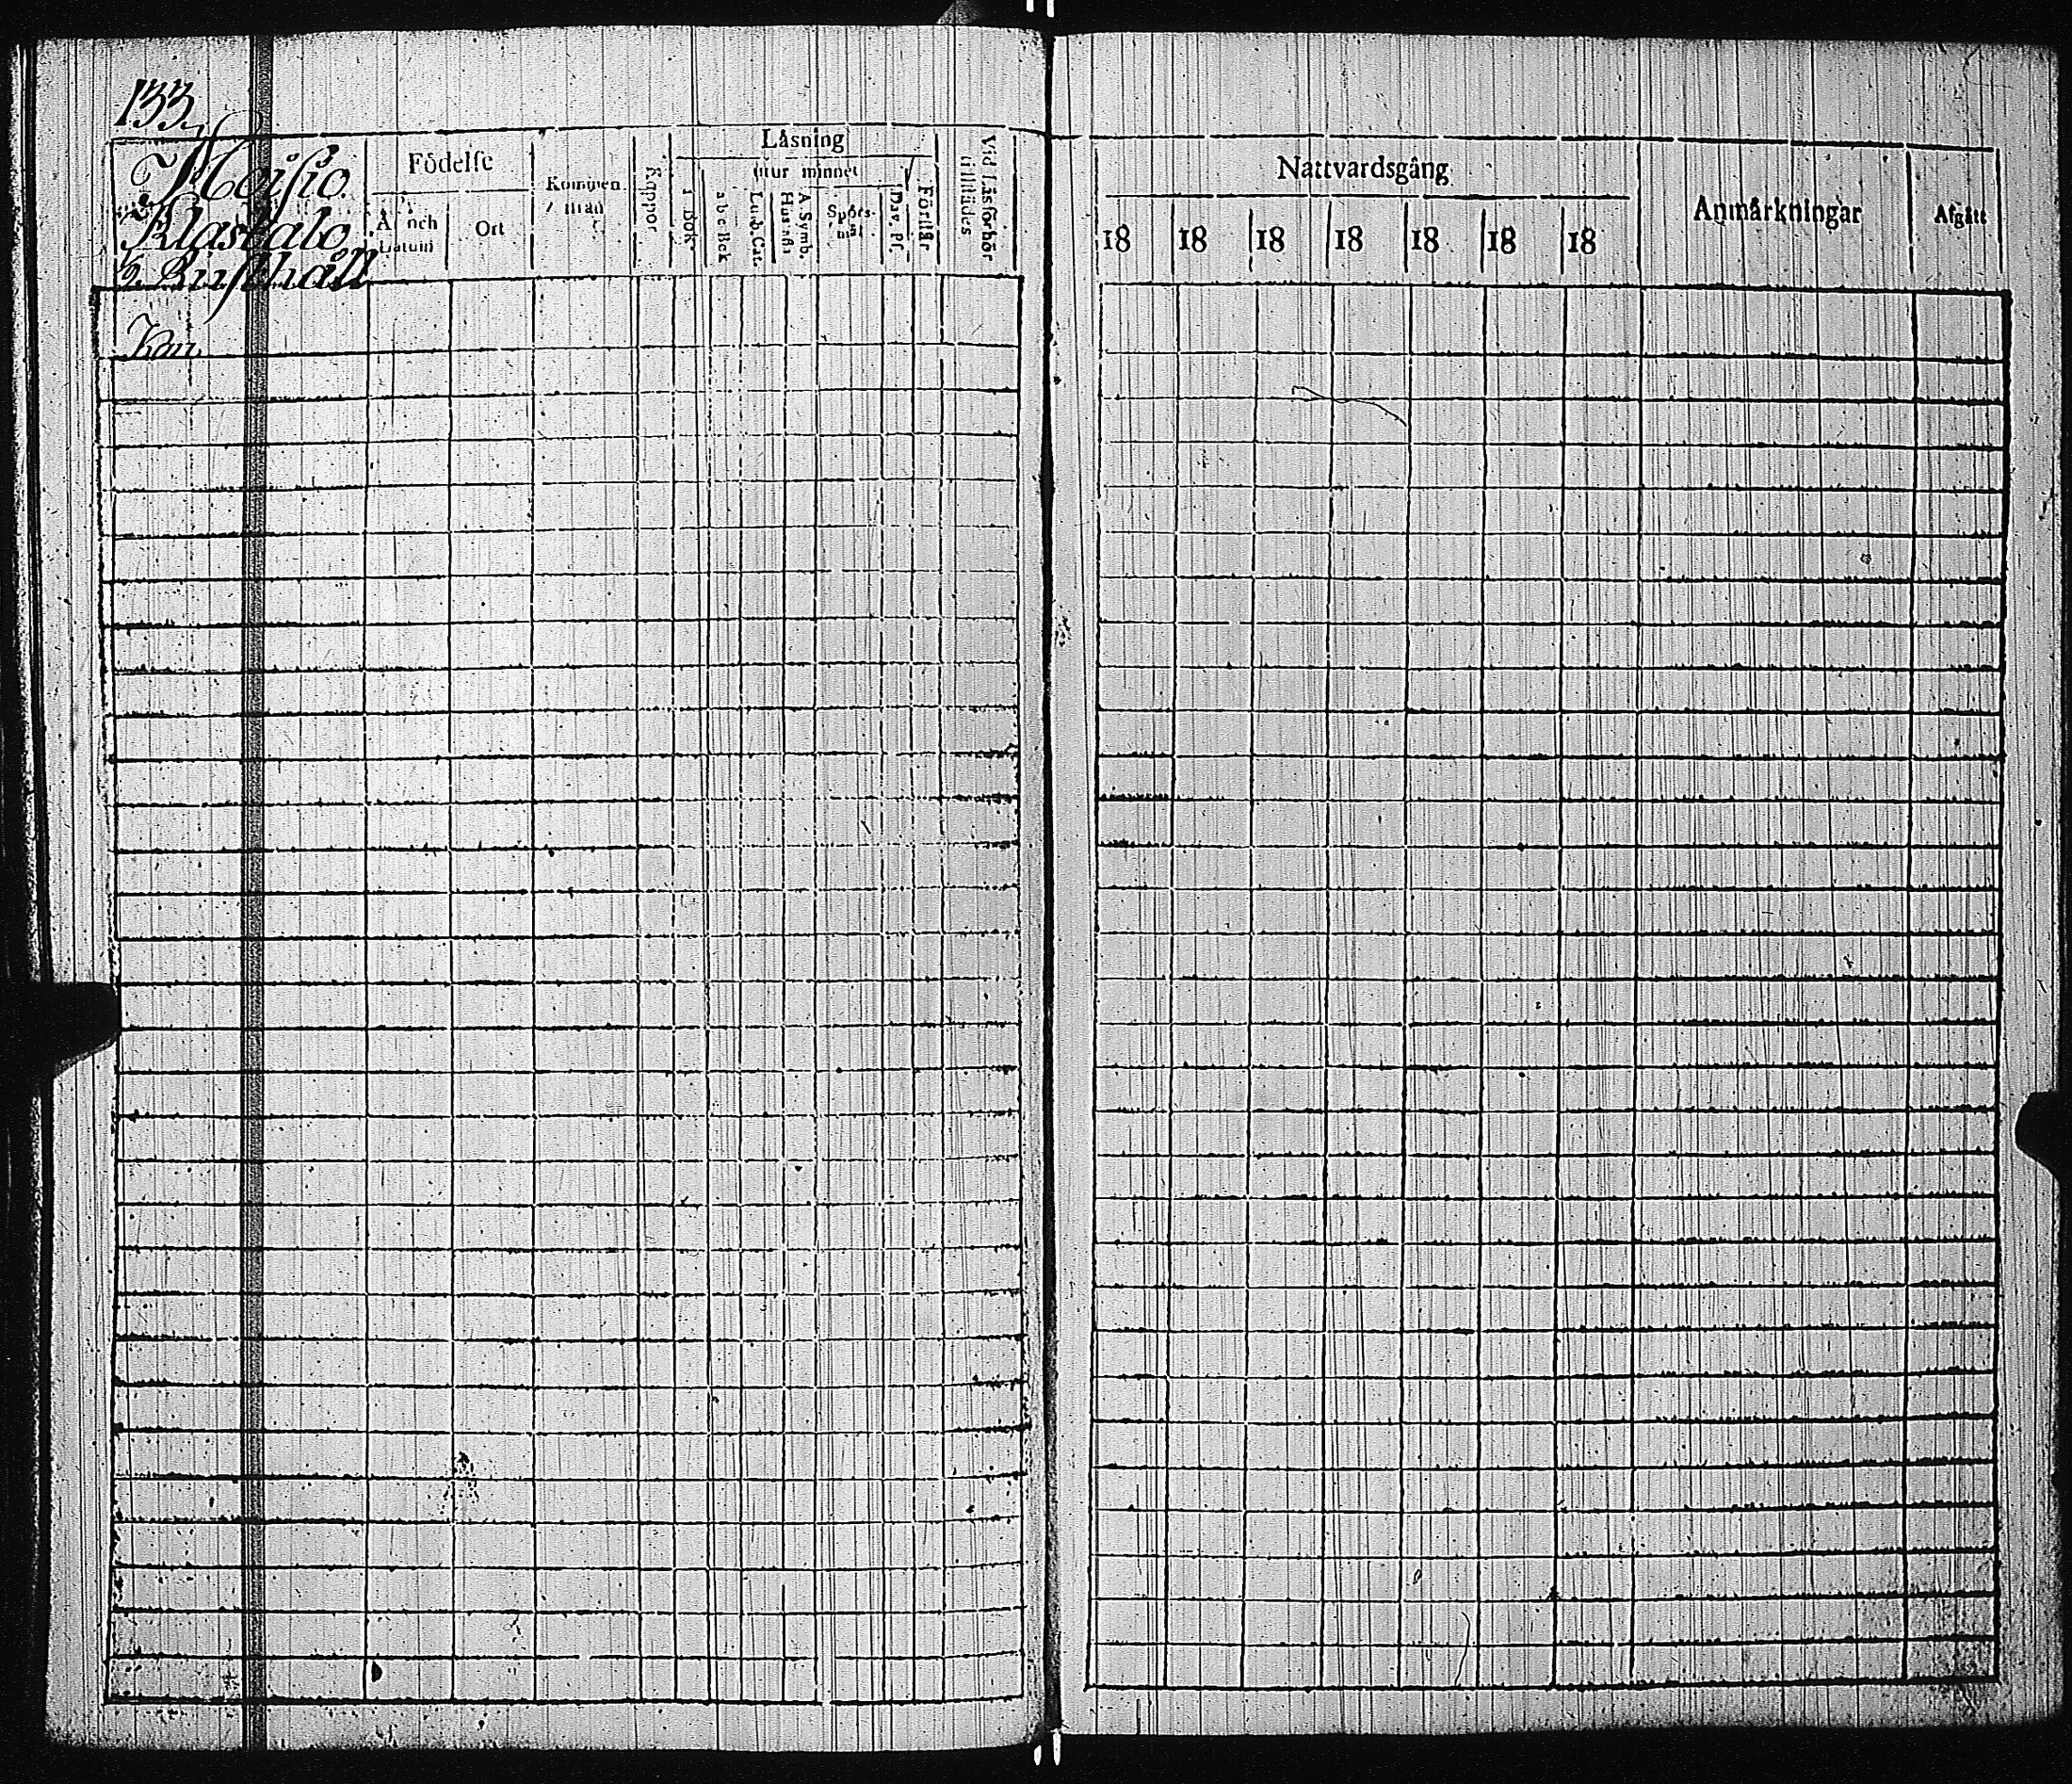 133.
Moisio
Klastalo
½ Rusthåll
Födelse
År och
Datum
Ort
Kommen
Koppor
Låsning
utur minnet
i Bok
abc Bok
Luth. Cat.
Hustafla
A. Symb.
Spörs-
mål
Dav. Ps.
Förstår
Vid Låsförhör
tillstädes
Nattvardsgång
18 18 18 18 18 18 18
Anmårkningar
Afgått